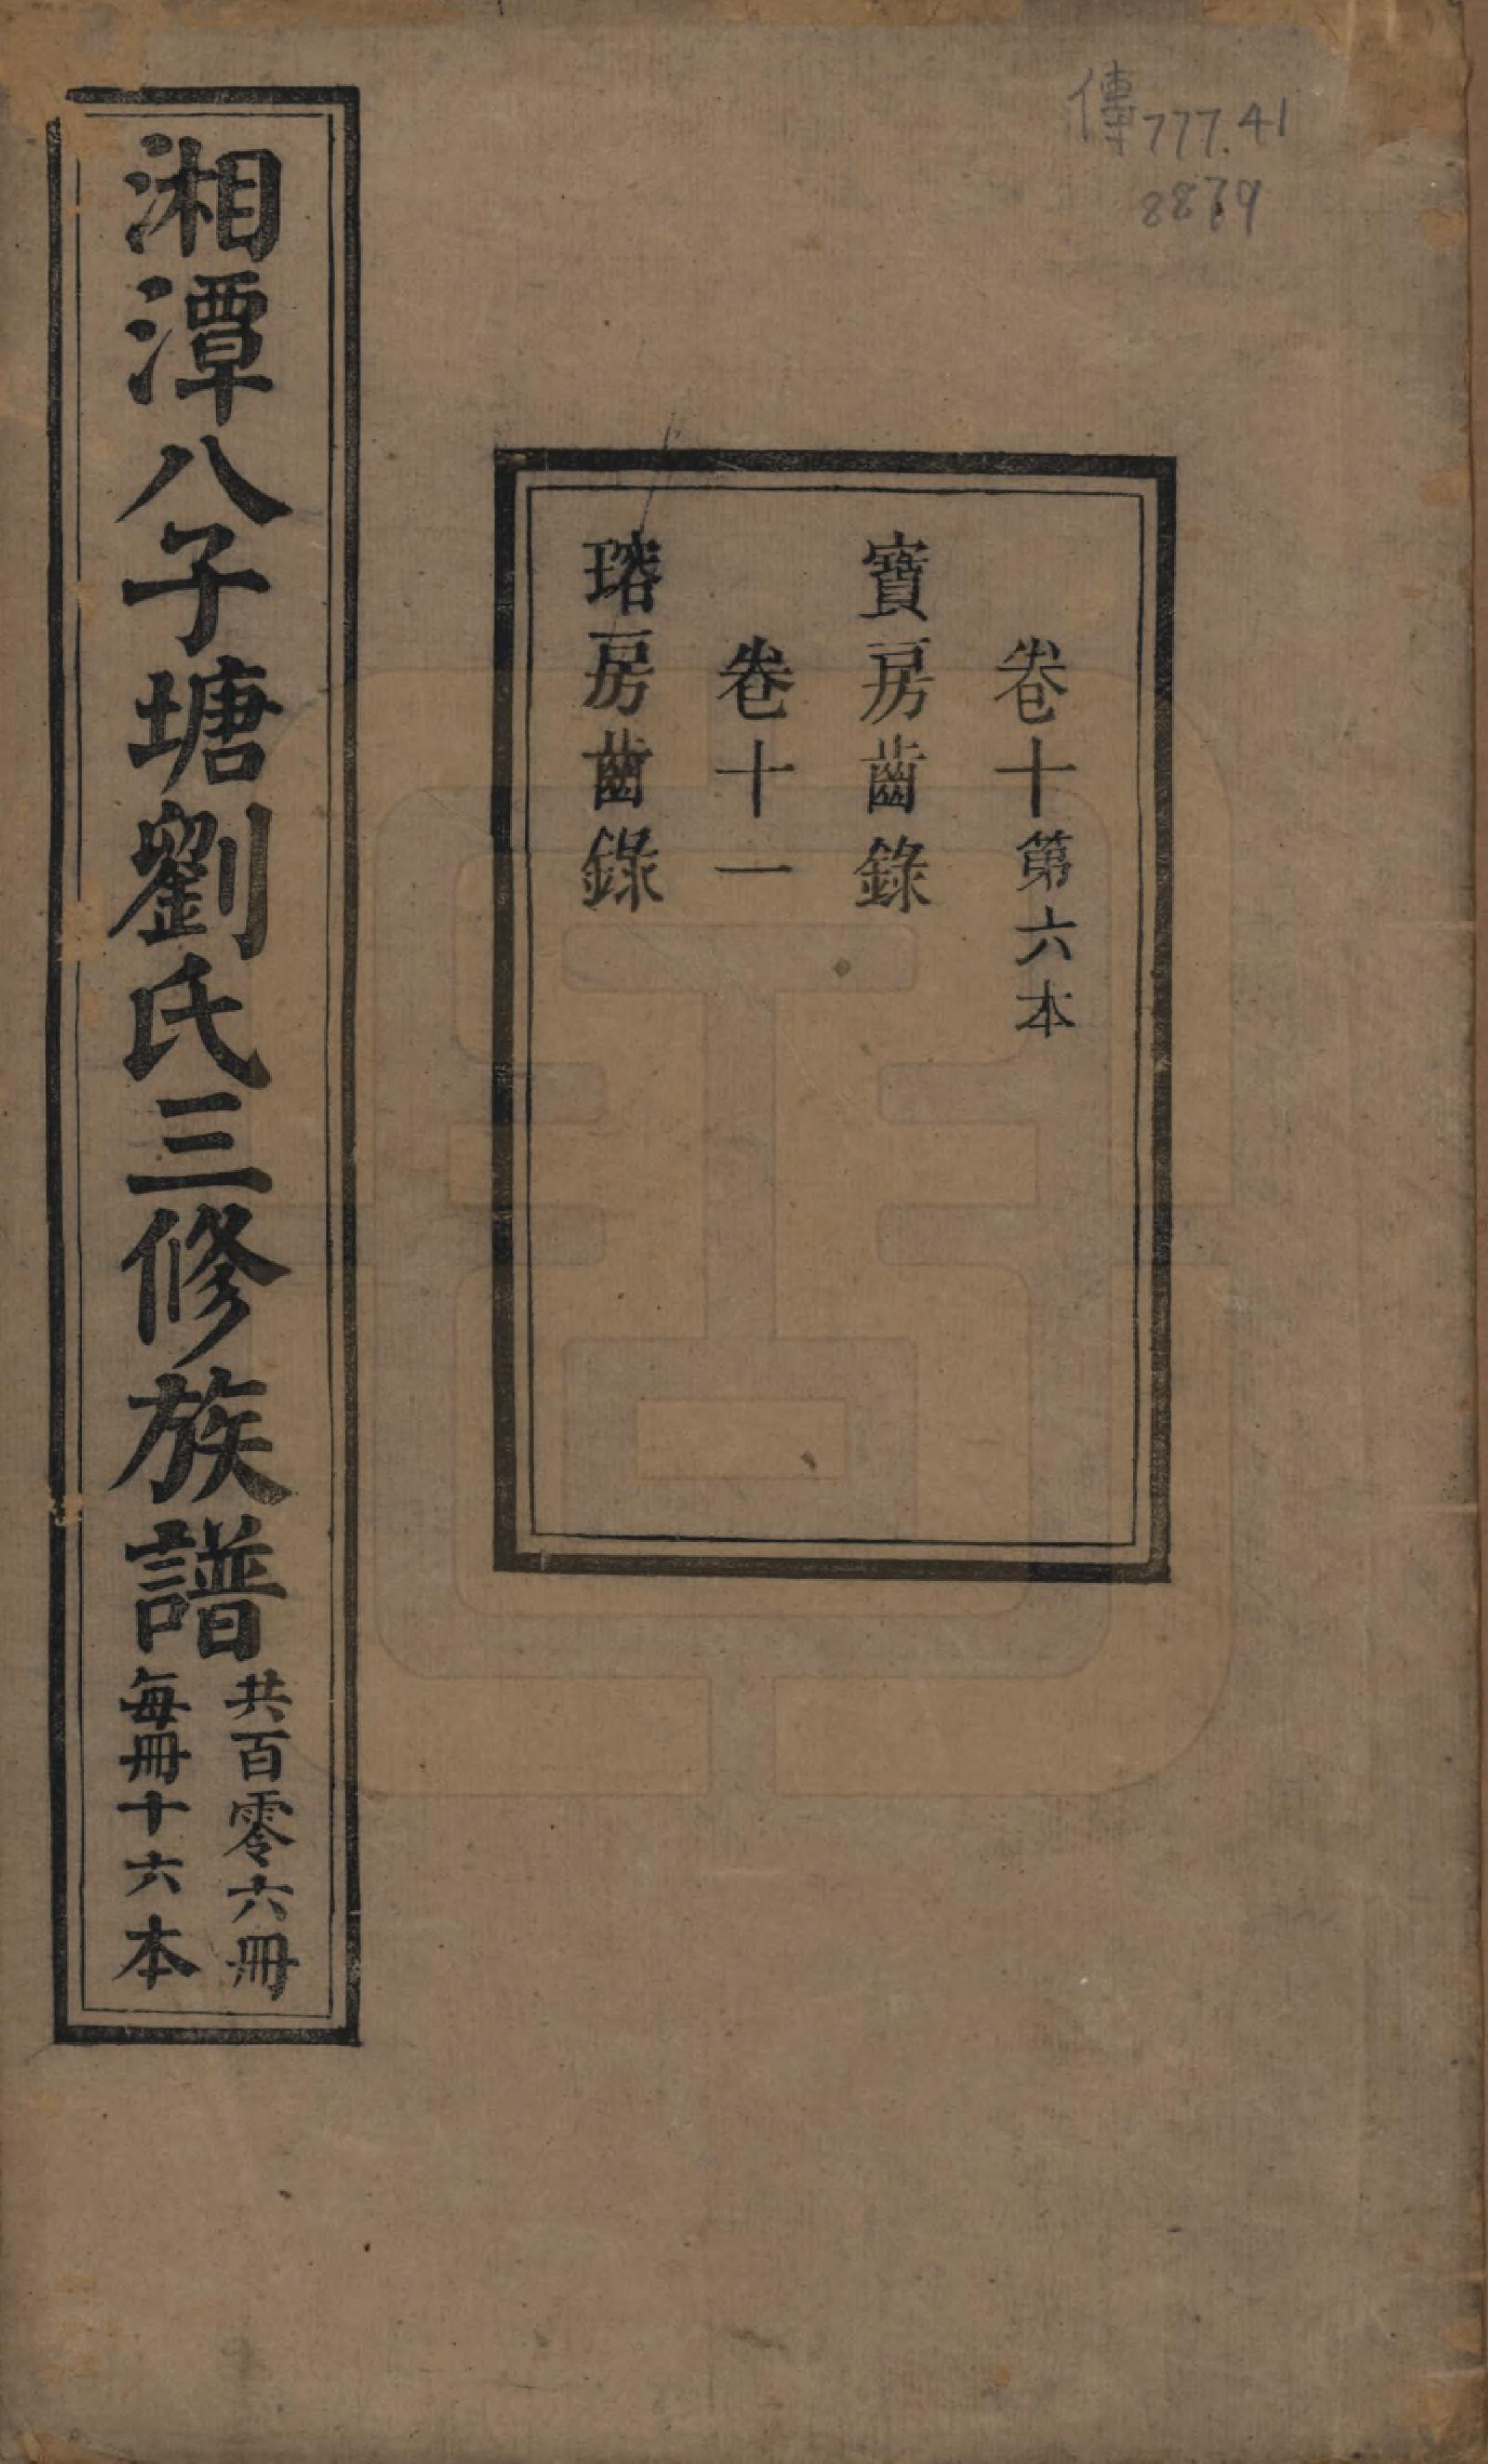 傳777.41
8879
卷十第六本
寶房齒錄
卷十一
瑢房齒錄
湘潭八子塘劉氏三修族譜
共百零六冊
每冊十六本